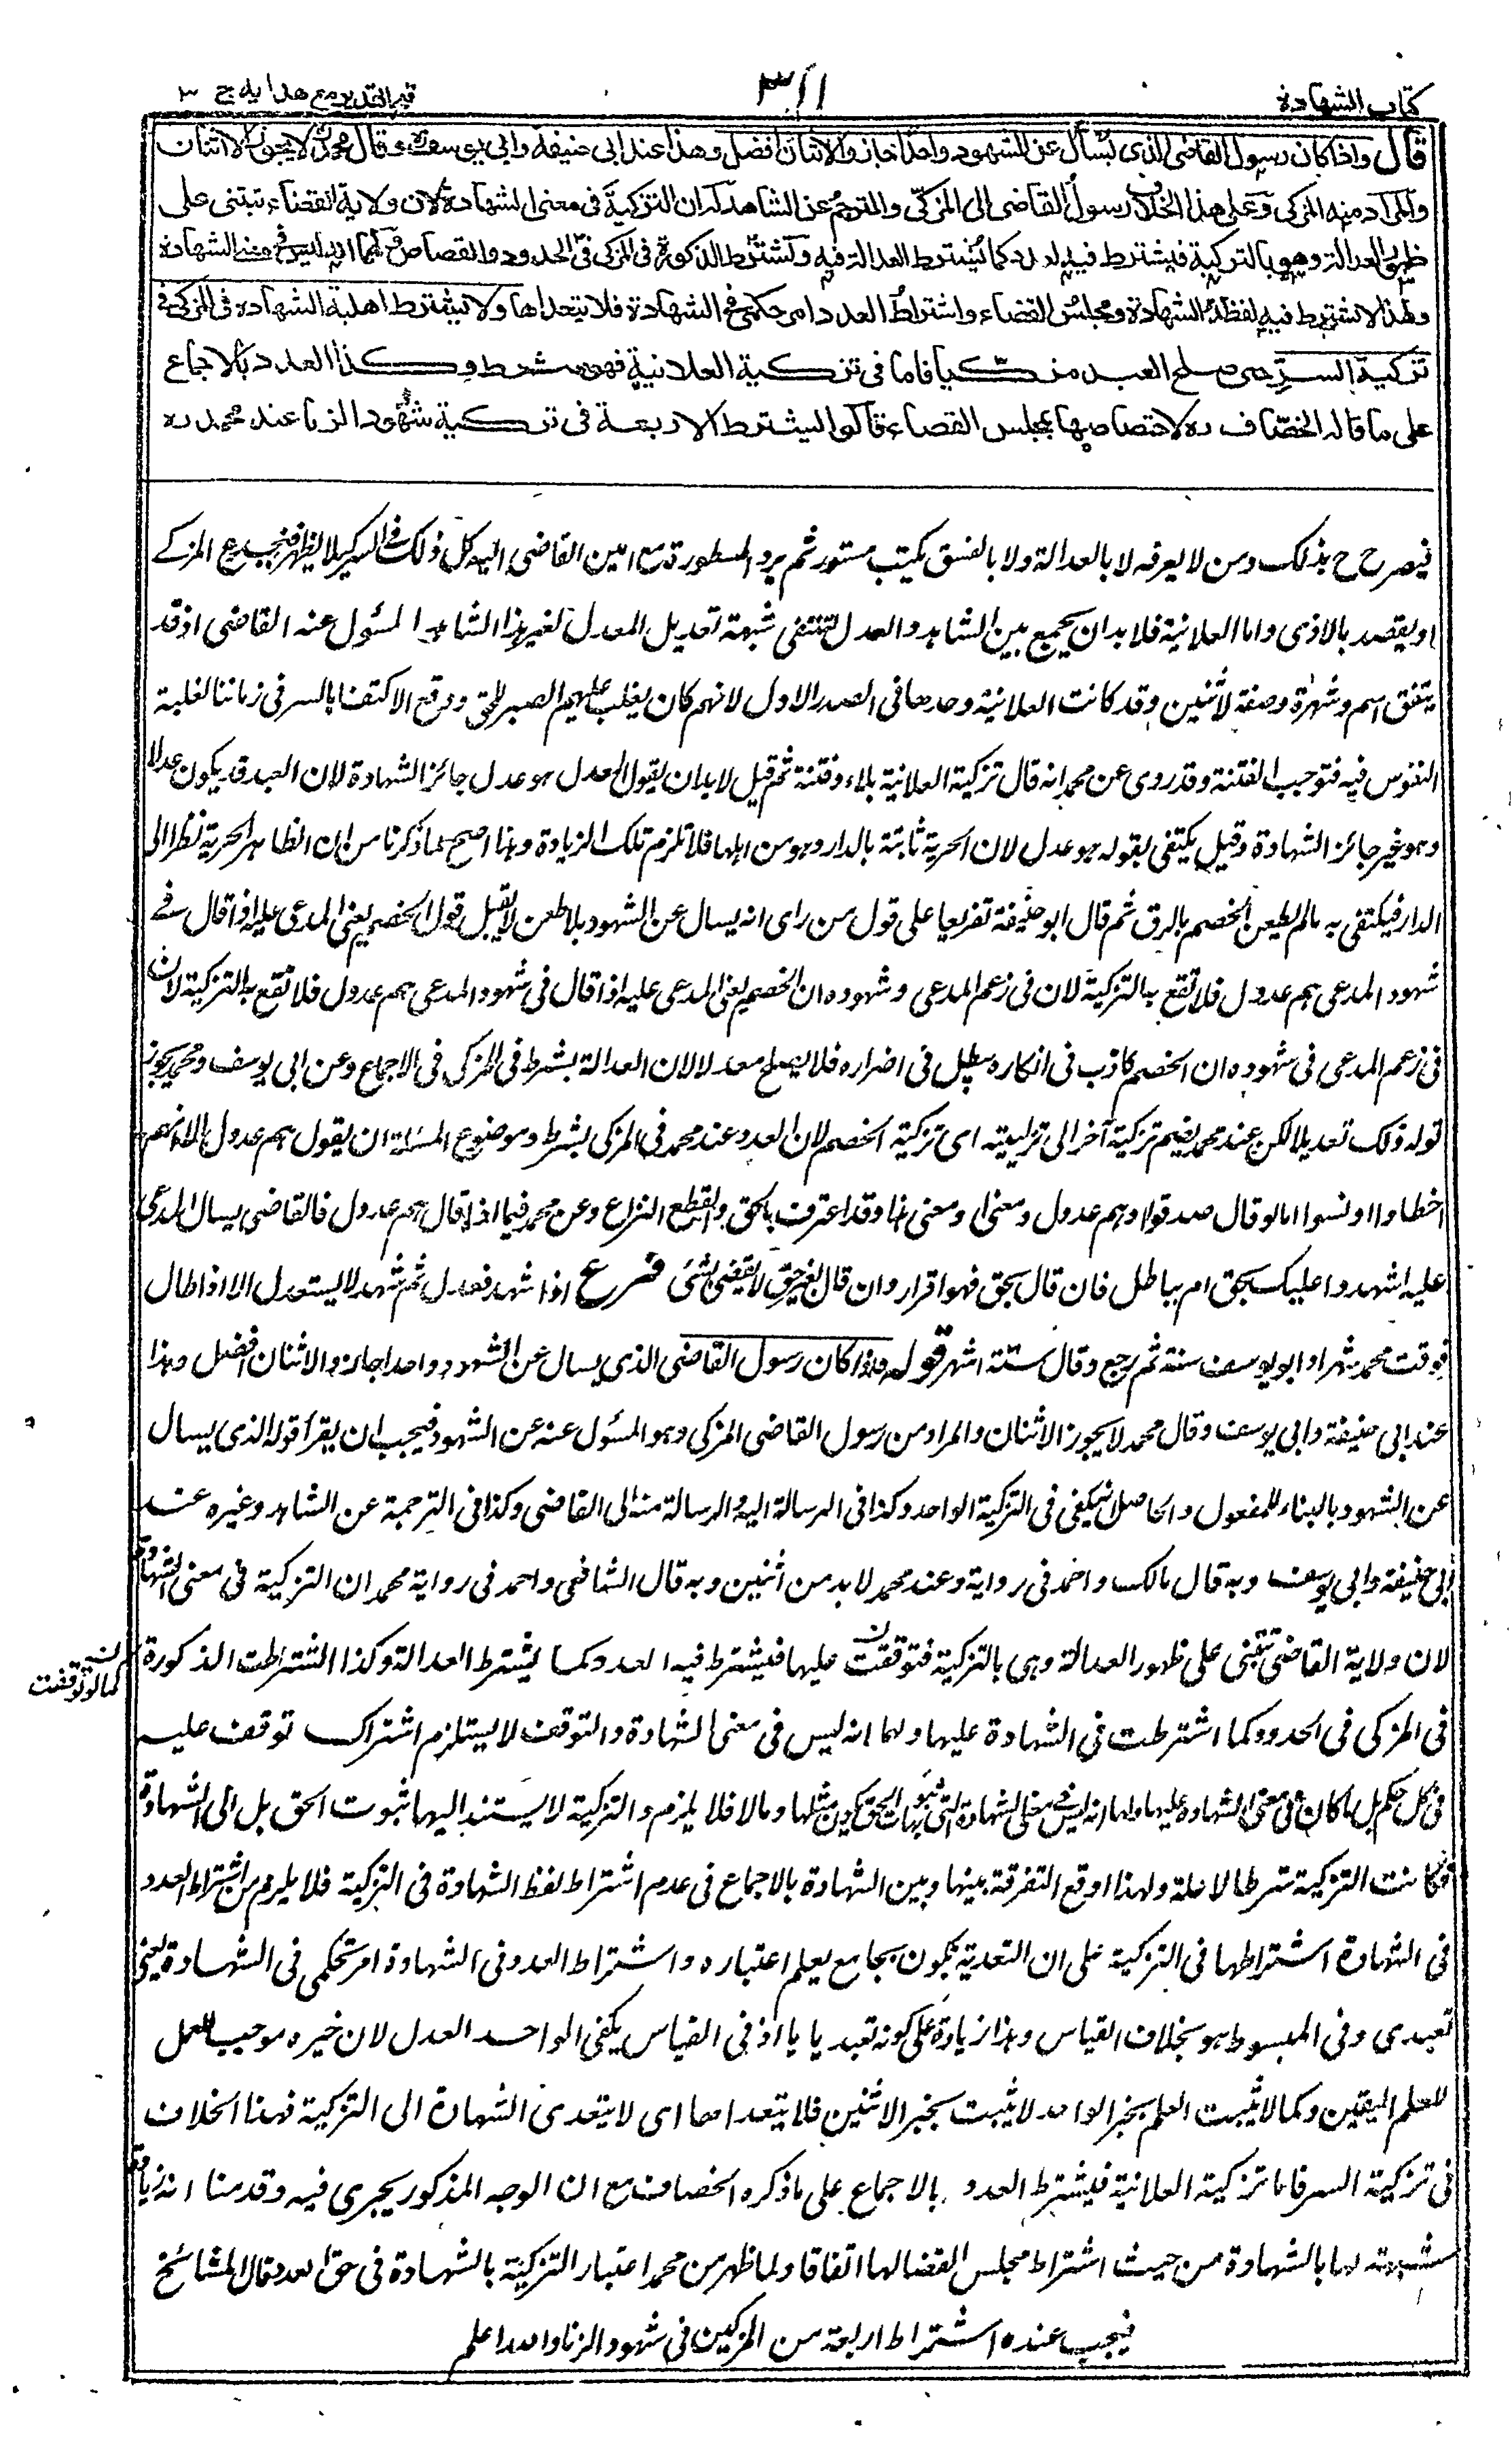 كتاب الشهادة
٣١١
فتح القدير مع هدايه ج ٣
قال واذا كان رسول القاضى الذى يسأل عن الشهود واحدا جاز والاثنان افضل وهذا عند ابى حنيفة وابى يوسف ره وقال محمد ره لا يجوز الا اثنان
والمراد منه المزكى وعلى هذا الخلاف رسول القاضى الى المزكى والمترجم عن الشاهد له ان التزكية فى معنى الشهادة لان ولاية القضاء تبتنى على
ظهور العدالة وهو بالتزكية فيشترط فيه العدد كما تشترط العدالة فيه وتشترط الذكورة فى المزكى فى الحدود والقصاص ولهما انه ليس فى معنى الشهادة
ولهذا لا تشترط فيه لفظة الشهادة ومجلس القضاء واشتراط العدد امر حكمى فى الشهادة فلا يتعداها ولا يشترط اهلية الشهادة فى المزكى فى
تزكية السر حتى صلح العبد مزكيا فاما فى تزكية العلانية فهو شرط وكذا العدد بالاجماع
على ما قاله الخصاف ره لاختصاصها بمجلس القضاء قالوا يشترط الاربعة فى تزكية شهود الزنا عند محمد ره
فيصرح ح بذلك ومن لا يعرفه لا بالعدالة ولا بالفسق يكتب مستور ثم يرد المسطورة مع امين القاضى اليه وكل ذلك فى السر كيلا يظهر فيخدع المزكے
او يقصد بالاذى واما العلانية فلا بد ان يجمع بين الشاهد والمعدل لتنتفى شبهة تعديل المعدل لغير هذا الشاهد المسئول عنه القاضى اذ قد
يتفق اسم وشهرة وصفة لاثنين وقد كانت العلانية وحدها فى الصدر الاول لانهم كان يغلب عليهم الصبر للحق ووقع الاكتفا بالسر فى زماننا لغلبة
النفوس فيه فتوجب الفتنة وقد روى عن محمد انه قال تزكية العلانية بلاء وفتنة ثم قيل لا بد ان يقول المعدل هو عدل جائز الشهادة لان العبد قد يكون عدلا
وهو غير جائز الشهادة وقيل يكتفى بقوله هو عدل لان الحرية ثابتة بالدار وهو من اهلها فلا تلزم تلك الزيادة وهذا اصح لما ذكرنا من ان الظاهر الحرية نظرا الى
الدار فيكتفى به مالم يطعن الخصم بالرق ثم قال ابو حنيفة تفريعا على قول من راى انه يسال عن الشهود بلا طعن لا يقبل قول الخصم يعنى المدعى عليه اذا قال فے
شهود المدعى هم عدول فلا تقع به التزكية لان فى زعم المدعى وشهوده ان الخصم يعنى المدعى عليه اذا قال فى شهود المدعى هم عدول فلا تقع به التزكية لان
فى زعم المدعى فى شهوده ان الخصم كاذب فى انكاره مبطل فى اضراره فلا يصلح معدلا لان العدالة بشرط فى المزكى فى الاجماع وعن ابى يوسف ومحمد يجوز
قوله ذلك تعديلا لكن عند محمد يضم تزكية آخر الى تزكيته اى تزكية الخصم لان العدد عند محمد فى المزكى بشرط وموضوع المسئلة ان يقول هم عدول الا انهم
اخطاوا او نسوا اما لو قال صدقوا او هم عدول ومعنى ومعنى هذا وقد اعترف بالحق وانقطع النزاع وعن محمد فيما اذا قال هم عدول فالقاضى يسال المدعى
عليه اشهدوا عليك بحق ام بباطل فان قال بحق فهو اقرار وان قال بغير حق لا يقضى بشئ فرع اذا شهد فعدل ثم شهد لا يستعدل الا اذا طال
فوقت محمد شهرا وابو يوسف سنة ثم رجع وقال ستة اشهر قوله واذا كان رسول القاضى الذى يسال عن الشهود واحدا جاز والاثنان افضل وهذا
عند ابى حنيفة وابى يوسف وقال محمد لا يجوز الا اثنان والمراد من رسول القاضى المزكى وهو المسئول عنه عن الشهود فيجب ان يقرأ قوله الذى يسال
عن الشهود بالبناء للمفعول والحاصل انه يكفى فى التزكية الواحد وكذا فى الرسالة اليه والرسالة منه الى القاضى وكذا فى الترجمة عن الشاهد وغيره عند
ابى حنيفة وابى يوسف وبه قال مالك واحمد فى رواية وعند محمد لا بد من اثنين وبه قال الشافعى واحمد فى رواية محمد ان التزكية فى معنى الشهادة
لان ولاية القاضى تبتنى على ظهور العدالة وهى بالتزكية فتوقفت عليها فيشترط فيه العدد كما يشترط العدالة وكذا اشتراطت الذكورة
كما لو توقفت
فى المزكى فى الحدود كما اشترطت فى الشهادة عليها ولهما انه ليس فى معنى الشهادة والتوقف لا يستلزم اشتراك توقف عليه
فى كل حكم بل ما كان فى معنى الشهادة عليها ولهما انه ليس فى معنى الشهادة التى ثبوت الحق يكون مثلها وما لا فلا يلزم والتزكية لا يستند اليها ثبوت الحق بل الى الشهادة
فكانت التزكية شرطا لا علة ولهذا اوقع التفرقة بينها وبين الشهادة بالاجماع فى عدم اشتراط لفظ الشهادة فى التزكية فلا يلزم من اشتراط العدد
فى الشهادة اشتراطها فى التزكية على ان التعدية يكون بجامع يعلم اعتباره واشتراط العدد فى الشهادة امر تحكمى فى الشهادة يعنى
تعبدى وفى المبسوط هو بخلاف القياس وهذا زيادة على كونه تعبديا يا اذ فى القياس يكفى الواحد العدل لان خبره موجب للعمل
للعلم اليقين وكما لا يثبت العلم بخبر الواحد لا يثبت بخبر الاثنين فلا يتعداها اى لا يتعدى الشهادة الى التزكية فهذا الخلاف
فى تزكية السر فاما تزكية العلانية فيشترط العدد بالاجماع على ما ذكره الخصاف مع ان الوجه المذكور يجرى فيه وقدمنا انه زيادة
شبهته لها بالشهادة من حيث اشتراط مجلس القضا لها اتفاقا ولما ظهر من محمد اعتبار التزكية بالشهادة فى حق العدد قال المشائخ
فيجب عنده اشتراط اربعة من المزكين فى شهود الزنا والله اعلم